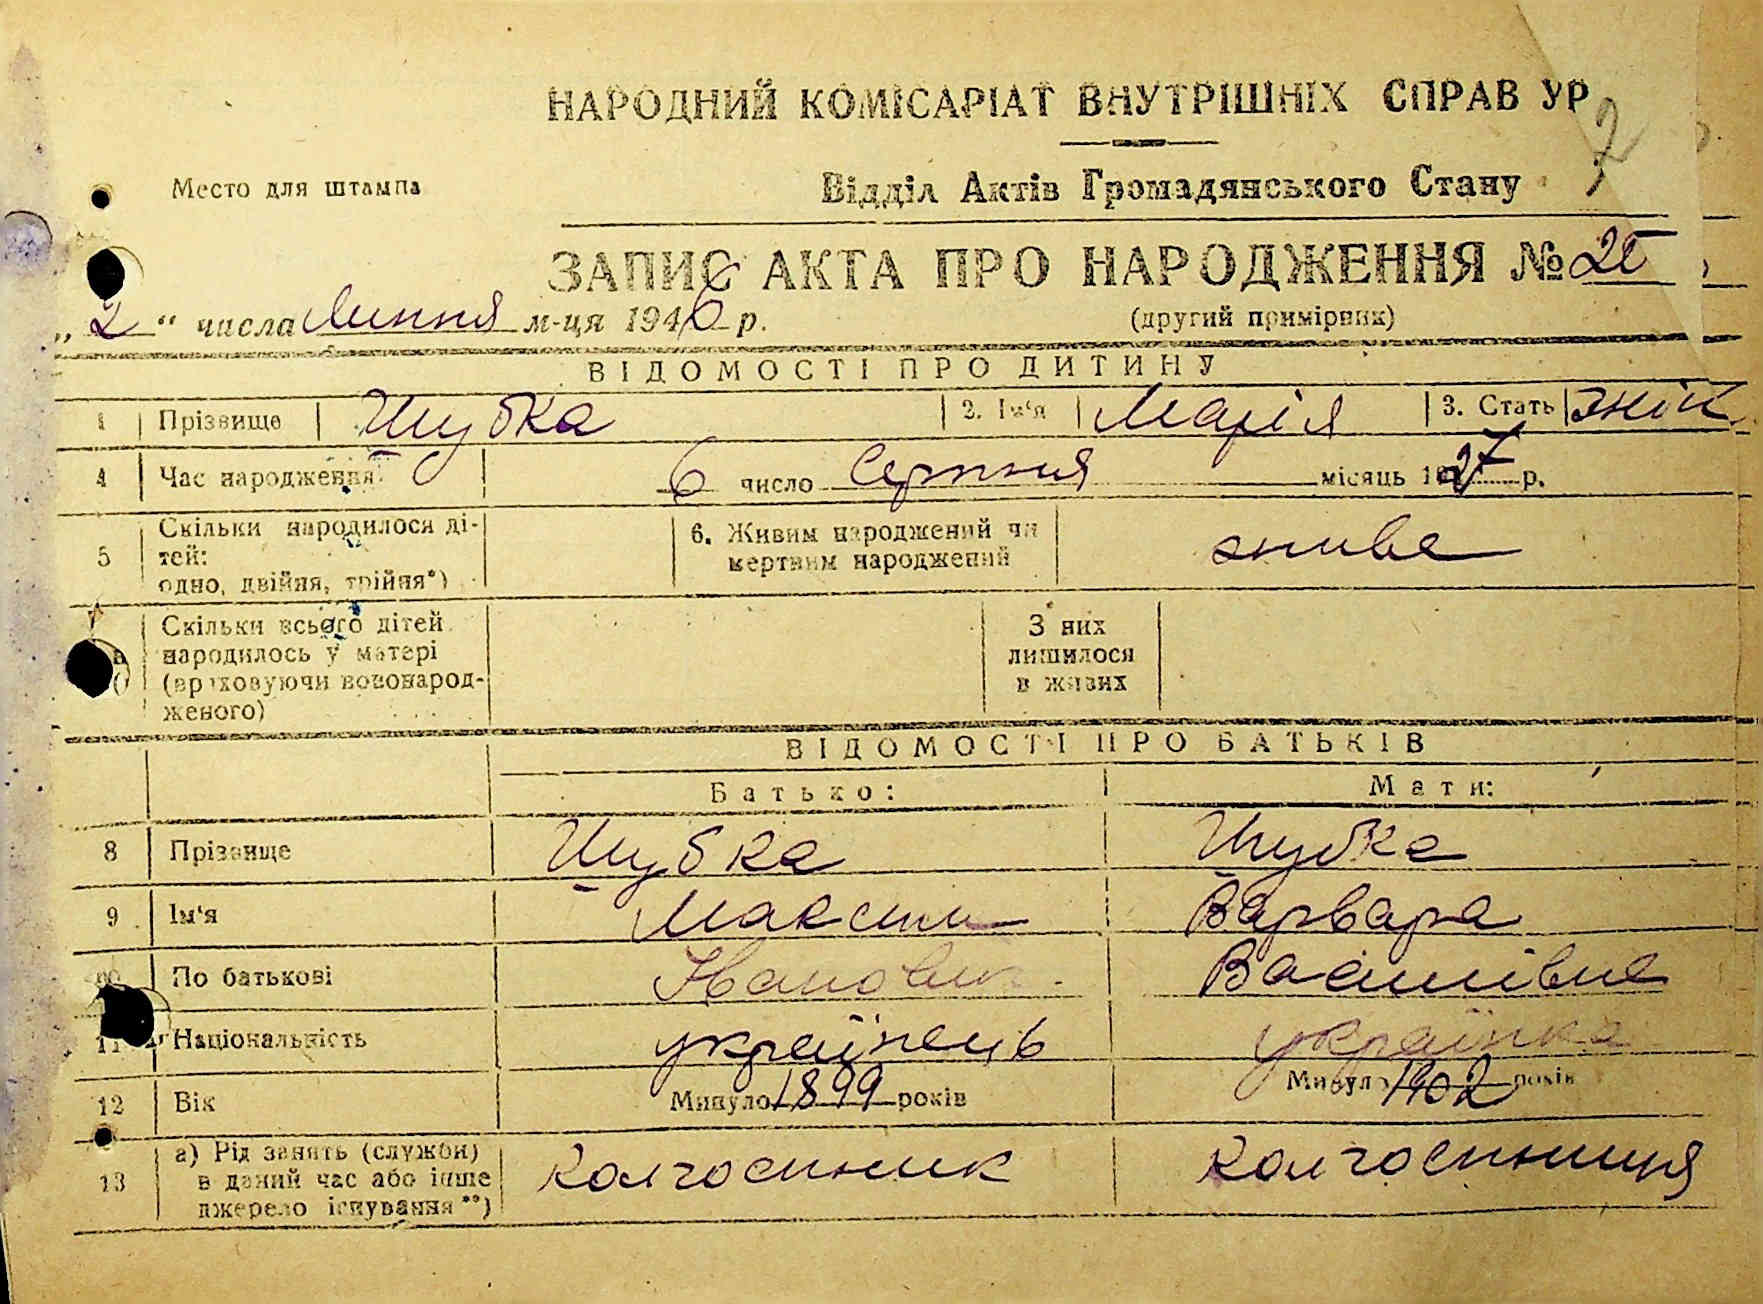 НАРОДНИЙ КОМІСАРІАТ ВНУТРІШНІХ СПРАВ УР
7
Место для штампа
Відділ Актів Громадянського Стану
ЗАПИС АКТА ПРО НАРОДЖЕННЯ № 25
„2“ числа Липня м-ця 1946 р. (другий примірник)
ВІДОМОСТІ ПРО ДИТИНУ
1 Прізвище Шубка 2. Ім‘я Марія 3. Стать жін
4 Час народження: 6 число Серпня місяць 1927 р.
5 Скільки народилося ді-
тей:
одно, двійня, трійня*)
6. Живим народжений чи
мертвим народжений
живе
Скільки всього дітей
народилось у матері
(враховуючи новонарод-
женого)
З них
лишилося
в живих
ВІДОМОСТІ ПРО БАТЬКІВ
Батько: Мати:
8 Прізвище Шубка Шубка
9 Ім‘я Максим Варвара
10 По батькові Іванович Василівна
11 Національність українець українка
12 Вік Минуло 1899 років Минуло 1902 років
13 а) Рід занять (служби)
в даний час або інше
джерело існування **)
колгоспник колгоспниця